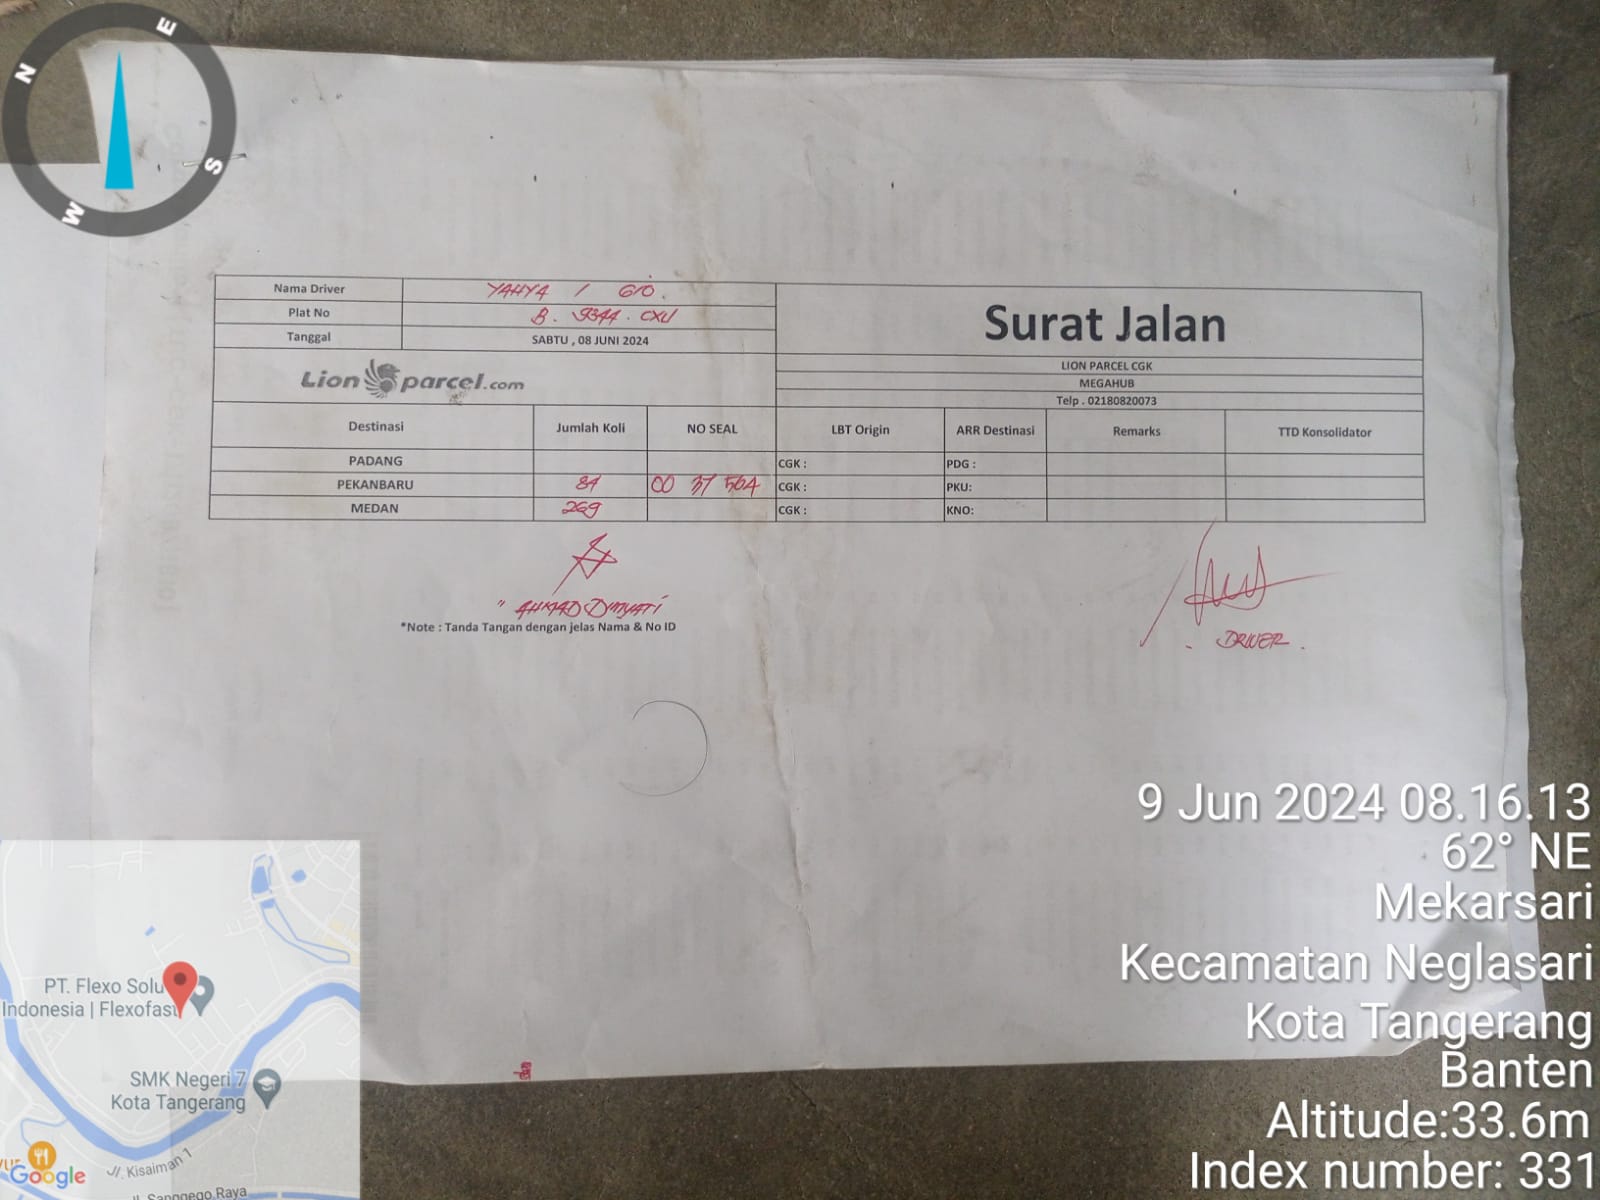 N
E
S
W
Nama Driver YAHYA / GIO.
Plat No B. 9344. CXU
Tanggal SABTU , 08 JUNI 2024
Surat Jalan
Lion parcel.com
LION PARCEL CGK
MEGAHUB
Telp . 02180820073
Destinasi Jumlah Koli NO SEAL LBT Origin ARR Destinasi Remarks TTD Konsolidator
PADANG CGK : PDG :
PEKANBARU 84 00 37 564 CGK : PKU:
MEDAN 269 CGK : KNO:
" AHMAD DIMYATI
*Note : Tanda Tangan dengan jelas Nama & No ID
. DRIVER .
9 Jun 2024 08.16.13
62° NE
Mekarsari
Kecamatan Neglasari
Kota Tangerang
Banten
Altitude:33.6m
Index number: 331
PT. Flexo Solu
Indonesia | Flexofast
SMK Negeri 7
Kota Tangerang
Jl. Kisaiman 1
Google
Jl. Sanggego Raya